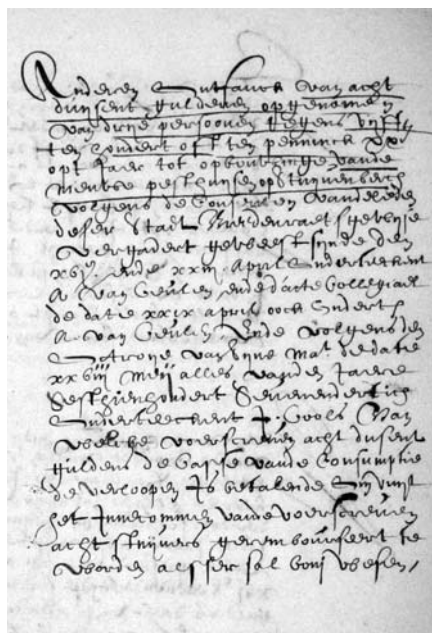 Anderen Ontfanck van acht
duijsent guldenen opgenomen
van drije persoonen tegens vijff
ten hondert oft ten penninck XX
opt jaer tot opbouwinge vande
nieuwe pesthuijsen opt stuijvenberch
volgens de Consenten vande leden
deser stadt Breedenraets gewijse
vergadert geweest sijnde den
xvij ende xxiij april onderteekent
A. van Geulen, ende d'acte Collegiael
de datie xxix april oock ondert
A. van Geulen Ende volgens den
Octroije van sijne Mat. de datie
xxviij Meij alles vanden Jaere
Sesthienhondert Sevenendertich
Onderteeckent J. Cools Van
welcke voerscreven acht dusent
guldens de Casse vande Consumptie
de verloopen is betalende Om vuijt
het Innecommen vande voerscreven
acht stuijvers gerembourseert te
worden alsser sal bonij wesen,